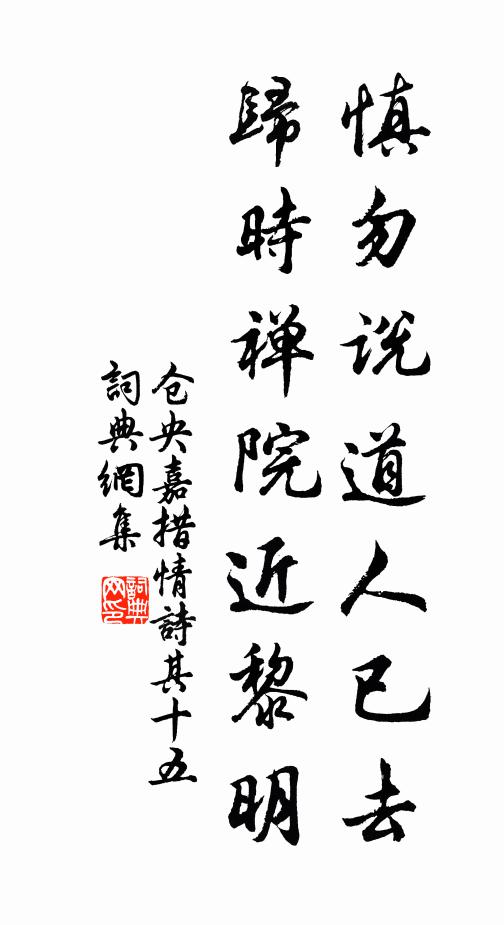 慎勿说道人已去
歸時禅院近黎明
仓央嘉措情詩其十五
詞典網集
詞典
网印